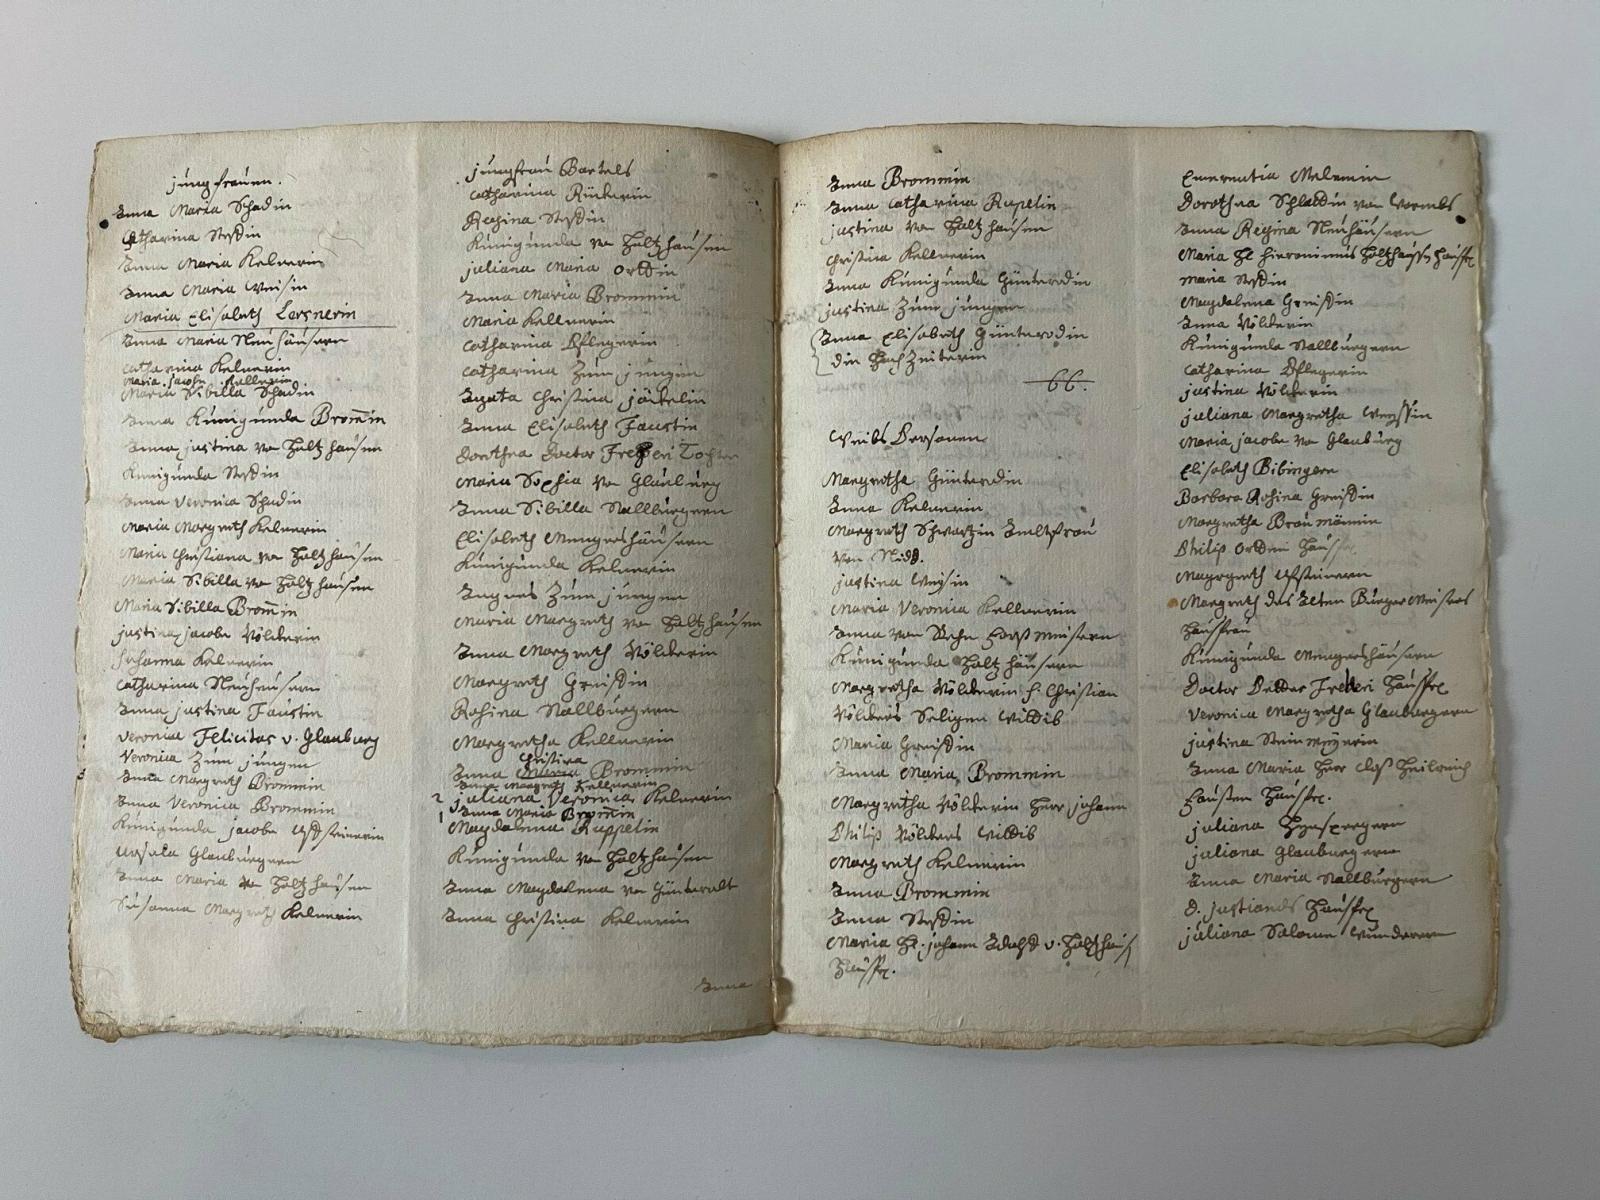 jungfrauen.
Anna Maria Schadin
Catharina Steffin
Anna Maria Kelnerin
Anna Maria Weisin
Maria Elisabeth Lersnerin
Anna Maria Neuhäusern
Catharina Kelnerin
Maria Jacobe Kellnerin
Maria Sibilla Schadin
Anna Künigunda Brom̄in
Anna justina vo Holtzhausen
Künigunda Steffin
Anna Veronica Schadin
Maria Margreth Kelnerin
Maria Christiana vo Holtzhausen
Maria Sibilla vo Holtzhausen
Maria Sibilla Brom̄in
justina jacobe Völckerin
Susanna Kelnerin
Catharina Neuheusern
Anna justina Faustin
Veronica Felicitas v. Glauburg
Veronica Zum jungen
Anna Margreth Brommin
Anna Veronica Brommin
Künigunda jacobe Uffsteinerin
Ursula Glauburgern
Anna Maria vo Holtzhausen
Susanna Margreth Kelnerin
jungfrau Bartels
Catharina Rückerin
Regina Steffin
Künigunda vo Holtzhausen
juliana Maria Orttin
Anna Maria Brommin
Maria Kellnerin
Catharina Pflegerin
Catharina Zum jungen
Agata Christina jäckelin
Anna Elisabeth Faustin
Dorothea Doctor Tochter
Maria Sophia vo Glauburg
Anna Sibilla Stallburgern
Elisabeth Mengershäusern
Künigunda Kelnerin
Angnes Zum jungen
Maria Margreth vo Holtzhausen
Anna Margreth Völckerin
Margreth Greiffin
Rosina Stallburgern
Margretha Kellnerin
Christina
Anna Maria Brommin
Anna Margreth Kellnerin
2 juliana Veronica Kelnerin
1 Anna Maria Brom̄in
Magdalena Ruppelin
Künigunda vo Holtzhausen
Anna Magdalena vo Günterodt
Anna Christina Kelnerin
Anna
Anna Brommin
Anna Catharina Rupelin
justina vo Holtzhausen
Christina Kellnerin
Anna Künigunda Günterodin
justina Zum jungen
Anna Elisabeth Günterodin
die Hochzeiterin
66.
Weibs Personen
Margretha Günterodin
Anna Kelnerin
Margreth Schwartzin Amltfrau
von Nidd.
justina Weisin
Maria Veronica Kellnerin
Anna von Forstmeistern
Künigunda Holtzhäusern
Margretha Völckerin H. Christian
Völckers Seligen Wittib
Maria Greiffin
Anna Maria Brommin
Margretha Völckerin Herr johann
Philip Völckers Wittib
Margreth Kelnerin
Anna Brommin
Anna Steffin
Maria H. johann Adolff v. Holtzhaus
Hausfr.
Emerentia Melemin
Dorothea von Wormbs
Anna Regina Neuhäusern
Maria H. Hieronimus Holtzhausen Hausfr.
Maria Steffin
Magdalena Greiffin
Anna Völckerin
Künigunda Stallburgern
Catharina Pflegerin
justina Völckerin
juliana Margretha Weyssin
Maria jacobe vo Glauburg
Elisabeth Bibingern
Barbara Rosina Greiffin
Margretha Braumännin
Philip Orttein Hausfr.
Margreth Uffsteinern
Margreth des Alten Burger Meisters
Hausfrau
Künigunda Mengershäusern
Doctor Hausfr.
Veronica Margretha Glauburgern
justina Steinmeyerin
Anna Maria Herr Heilreich
Fausten Hausfr.
juliana
juliana Glauburgern
Anna Maria Stallburgern
D. Hausfr.
juliana Salome Wunderern